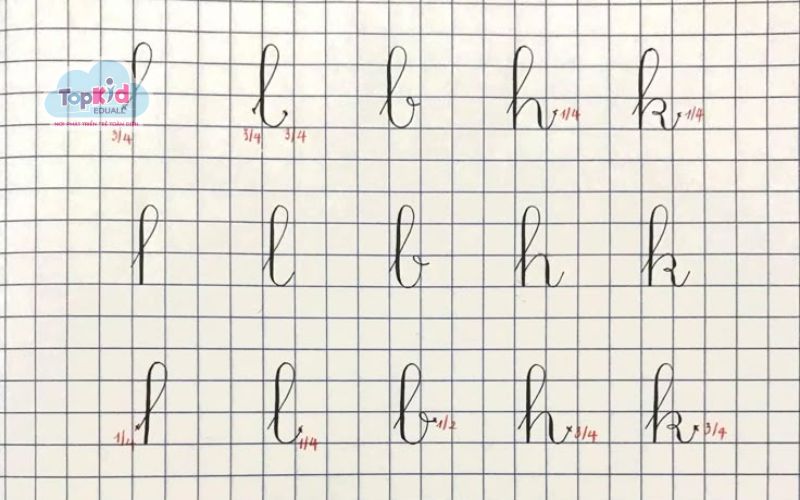 TopKid
EDUALL
NƠI PHÁT TRIỂN TRẺ TOÀN DIỆN
l b h 1/4 k 1/4
3/4 3/4 3/4
l b h k
1/4 l 1/4 b 1/2 h 3/4 k 3/4